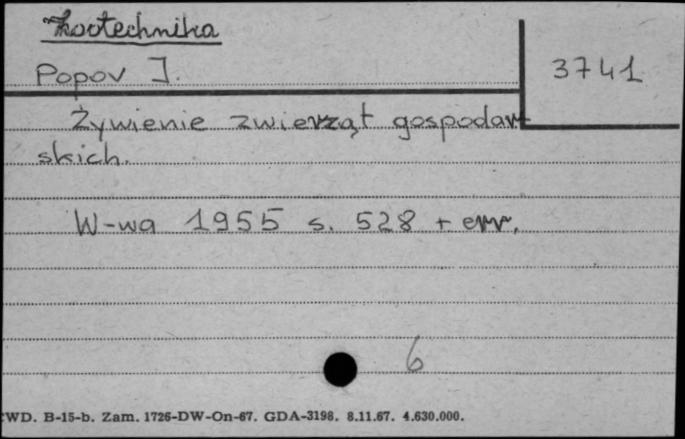 Zootechnika
Popov J.
3741
Żywienie zwierząt gospodar-
skich.
W-wa 1955 s. 528 + err.
6
WD. B-15-b. Zam. 1726-DW-On-67. GDA-3198. 8.11.67. 4.630.000.